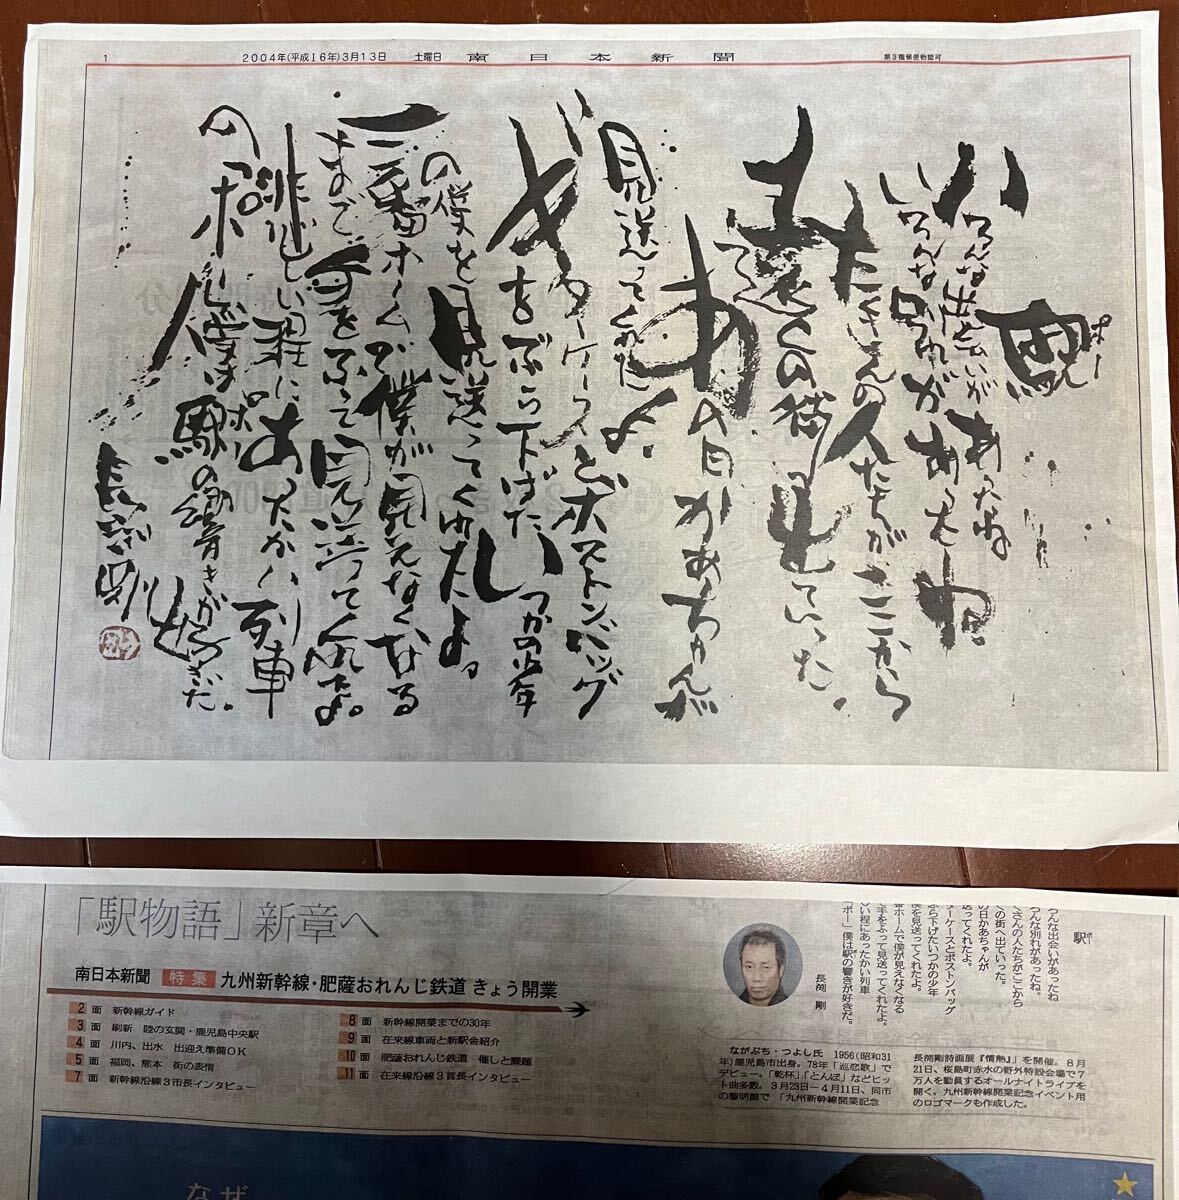 1
2004年(平成16年)3月13日
土曜日
南日本新聞
第3種郵便物認可
駅
ポー
いろんな出会いがあったね
いろんな別れがあったね。
たくさんの人たちがここから
遠くの街へ出ていった。
あの日かあちゃんが
見送ってくれたよ。
ギターケースとボストンバッグ
をぶら下げたいつかの少年
の僕を見送ってくれたよ。
一番ホームで僕が見えなくなる
まで手をふって見送ってくれたよ。
悲しい程にあったかい列車
の「ポー」僕は駅の響きが好きだ。
長渕 剛
「駅物語」新章へ
南日本新聞 特集 九州新幹線・肥薩おれんじ鉄道 きょう開業
2面 新幹線ガイド
3面 刷新 陸の玄関・鹿児島中央駅
4面 川内、出水 出迎え準備OK
5面 福岡、熊本 街の表情
7面 新幹線沿線3市長インタビュー
8面 新幹線開業までの30年
9面 在来線車両と新駅舎紹介
10面 肥薩おれんじ鉄道 催しと課題
11面 在来線沿線3首長インタビュー
駅
ろんな出会いがあったね
ろんな別れがあったね。
くさんの人たちがここから
くの街へ出ていった。
の日かあちゃんが
送ってくれたよ。
ターケースとボストンバッグ
ぶら下げたいつかの少年
僕を見送ってくれたよ。
番ホームで僕が見えなくなる
で手をふって見送ってくれたよ。
しい程にあったかい列車
「ポー」僕は駅の響きが好きだ。
長渕 剛
ながぶち・つよし氏 1956(昭和31
年)鹿児島市出身。78年「巡恋歌」で
デビュー。「乾杯」「とんぼ」などヒッ
ト曲多数。3月23日−4月11日、同市
の黎明館で「九州新幹線開業記念
長渕剛詩画展『情熱』」を開催。8月
21日、桜島町赤水の野外特設会場で7
万人を動員するオールナイトライブを
開く。九州新幹線開業記念イベント用
のロゴマークも作成した。
なぜ